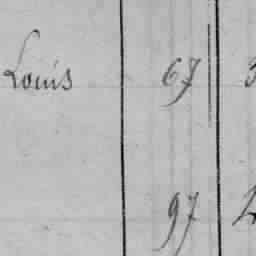 Louis 67 3
97